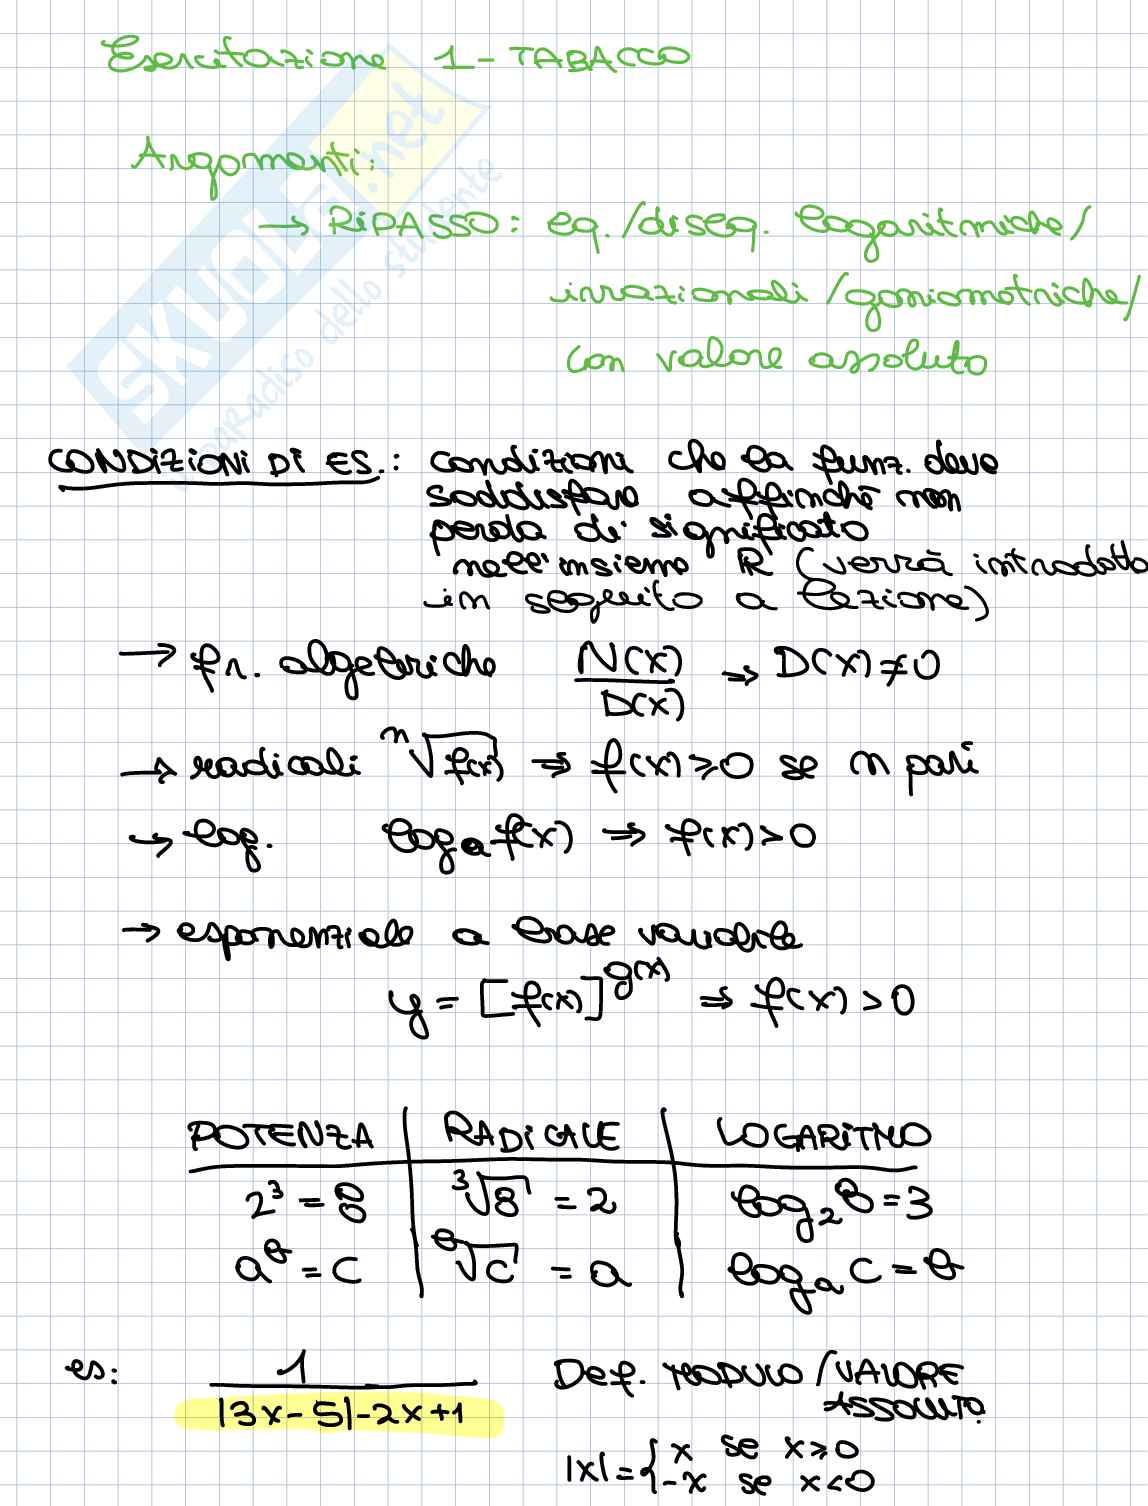 Esercitazione 1 - TABACCO
Argomenti:
→ RIPASSO: eq./diseq. logaritmiche/
irrazionali/goniometriche/
con valore assoluto
SKUOLA.net
paradiso dello studente
CONDIZIONI DI ES.: condizioni che la funz. deve
soddisfare affinché non
perda di significato
nell'insieme ℝ (verrà introdotto
in seguito a lezione)
→ fr. algebriche N(x)/D(x) → D(x) ≠ 0
→ radicali ⁿ√f(x) ⇒ f(x) ≥ 0 se n pari
→ log. logₐ f(x) ⇒ f(x) > 0
→ esponenziale a base variabile
y = [f(x)]^g(x) ⇒ f(x) > 0
POTENZA | RADICALE | LOGARITMO
2³ = 8 | ³√8 = 2 | log₂ 8 = 3
a^b = c | ᵇ√c = a | logₐ c = b
es: 1/(|3x-5|-2x+1) Def. MODULO/VALORE
ASSOLUTO
|x| = { x se x ≥ 0
-x se x < 0